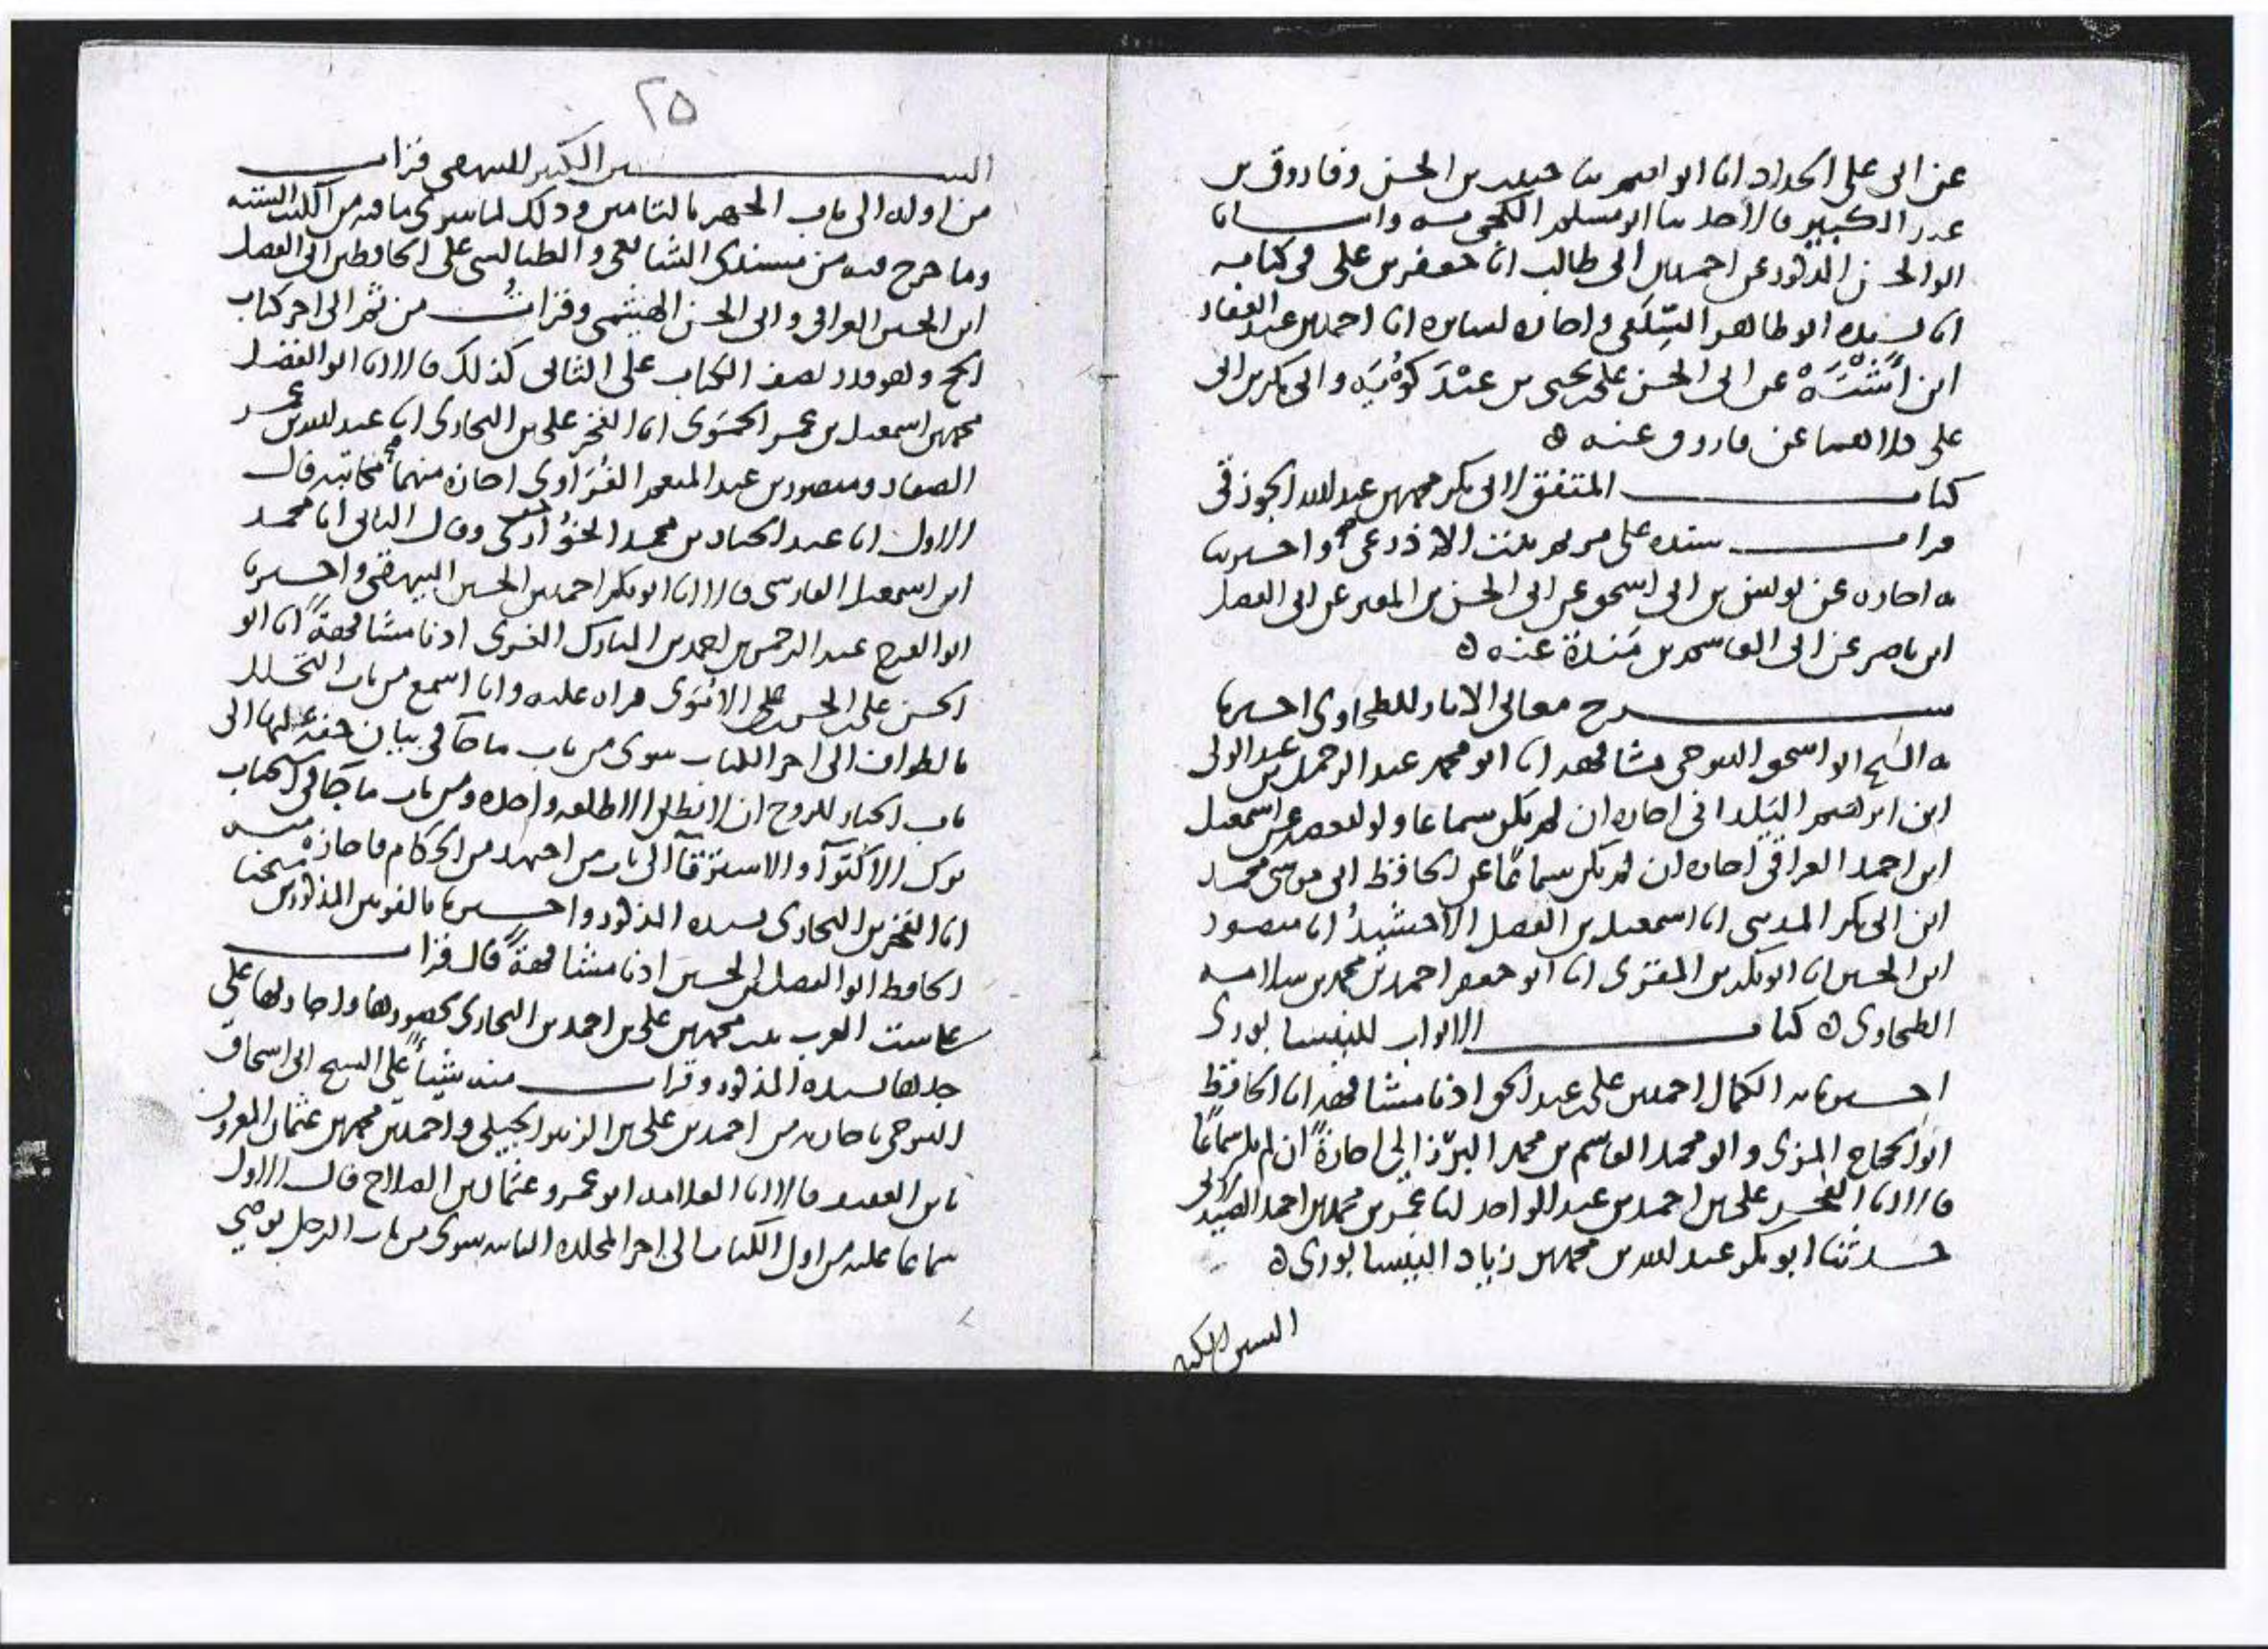 عن ابى على الحداد انا ابو نعيم ثنا حبيب بن الحسن وفاروق بن
عبد الكبير قالا حدثنا ابو مسلم الكجى به وانبانا
ابو الحسن المذكور عن احمد بن ابى طالب انا جعفر بن على فى كتابه
انا لسنده ابو طاهر السِّلَفى واجازه لسايره انا احمد بن عبد الغفار
ابن اَشْتَهْ عن ابى الحسن على بن يحيى بن عبْدَ كَوُيَه وابى بكر بن ابى
على كلاهما عن فاروق عنه ه
كتاب المتفق لابى بكر محمد بن عبد الله الجوزقى
قرات سنده على مريم بنت الاذرعى واخبرتنا
به اجازه عن يونس بن ابى اسحق عن ابى الحسن بن المقير عن ابى الفضل
ابن ناصر عن ابى القاسم بن مَندَة عنه ه
شرح معانى الاثار للطحاوى اخبرنا
به الشيخ ابو اسحق التنوخى مشافهه انا ابو محمد عبد الرحمن بن عبد الولى
ابن ابرهيم اليَلدانى اجازه ان لم يكن سماعا ولو لبعضه عن اسمعيل
ابن احمد العراقى اجازه ان لم يكن سماعًا عن الحافظ ابى موسى محمد
ابن ابى بكر المدينى انا اسمعيل بن الفضل الاخشيد انا منصور
ابن الحسين انا ابو بكر بن المقرى انا ابو جعفر احمد بن محمد بن سلامه
الطحاوى ه كتاب الابواب للنيسابورى
اخبرنا به الكمال احمد بن على بن عبد الحق اذنا مشافهه انا الحافظ
ابو الحجاج المزى وابو محمد القاسم بن محمد البِرْزالى اجازةً ان لم يكن سماعًا
قالا انا الفخر على بن احمد بن عبد الواحد انا عمر بن محمد بن احمد الصيدلانى
حدثنا ابو بكر عبد الله بن محمد بن زياد النيسابورى ه
السنن الكبير
٢٥
السنن الكبير للبيهقى قرات
من اوله الى باب الجهر بالتامين وذلك لما سوى ما فيه من الكتب الستة
وما خرج فيه من مسندى الشافعى والطيالسى على الحافظين ابى الفضل
ابن الحسين العراقى وابى الحسن الهيثمى وقراتُ من ثم الى اخر كتاب
الحج وهو قدر نصف الكتاب على الثانى كذلك قالا انا ابو الفضل
محمد بن اسمعيل بن عمر الحمَوى انا الفخر على بن البخارى انا عبد الله بن عمر
الصفار ومنصور بن عبد المنعم الفُرَاوى اجازه منهما مكاتبه قال
الاول انا عبد الجبار بن محمد الخُوَارى وقال الثانى انا محمد
ابن اسمعيل الفارسى قالا انا ابو بكر احمد بن الحسين البيهقى واخبرنا
ابو الفرج عبد الرحمن بن احمد بن المبارك الغزى اذنا مشافهةً انا ابو
الحسن على بن الحسن بن على الارْمَوى قراه عليه وانا اسمع من باب التحلل
بالطواف الى اخر الكتاب سوى من باب ما جآ فى بيان حقه عليها الى
باب الخيار للزوج ان لا يطلق الا طلقه واحده ومن باب ما جآ فى استحباب
ترك الاكتوآ والاسترقآ الى باب من اجتهد من الحكام فاجازه منه
انا الفخر بن البخارى بسنده المذكور واخبرنا بالفوتين المذكورين شيخنا
الحافظ ابو الفضل بن الحسين اذنا مشافهةً قال قرات
على ست العرب بنت محمد بن على بن احمد بن البخارى بحضورها واجازتها على
جدها بسنده المذكور وقرات منه شيئاً على الشيخ ابى اسحاق
التنوخى باجازته من احمد بن على بن الزبير الجيلى واحمد بن محمد بن عثمان المعروف
بابن الفقيه قالا انا العلامه ابو عمرو عثمان بن الصلاح قال الاول
سماعا عليه من اول الكتاب الى اخر المجلده الثانيه سوى من باب الرجل يوصى